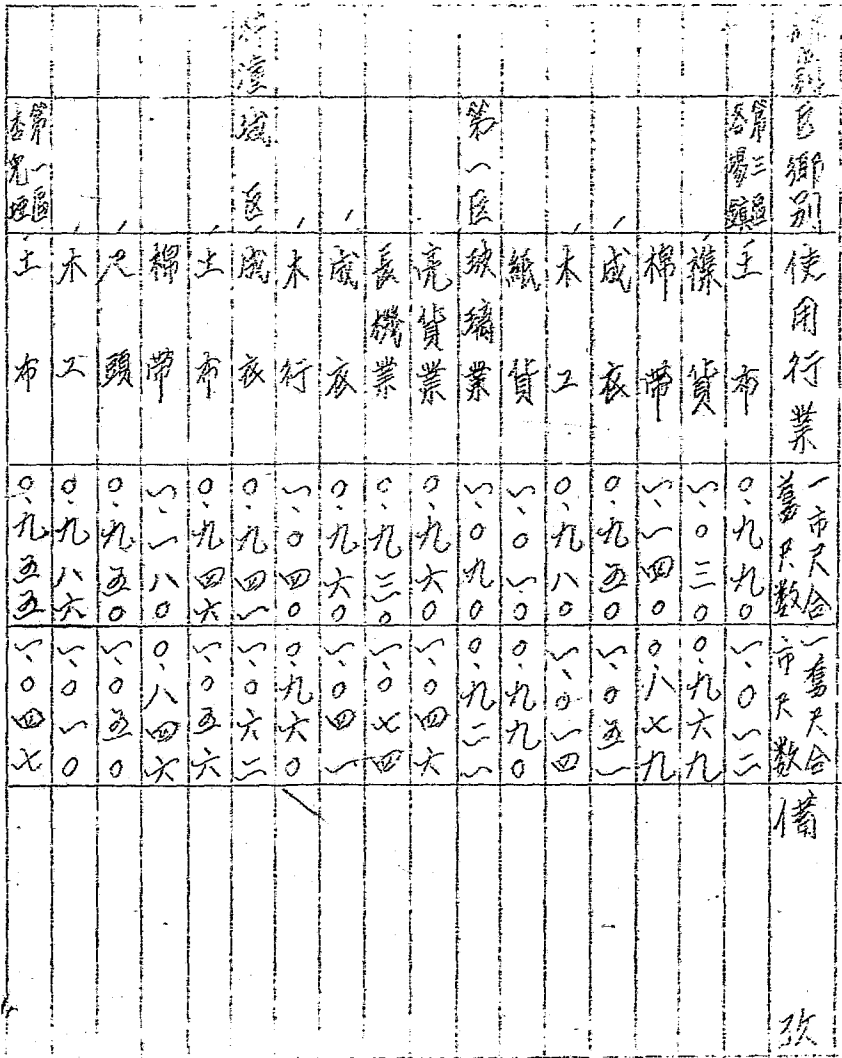 区鄉別 使用行業 一市尺合舊尺数 一舊尺合市尺数 備攷
第三區各場鎮 土布 〇、九九〇 一、〇一二
襍貨 一、〇三〇 〇、九六九
棉帶 一、一四〇 〇、八七九
成衣 〇、九五〇 一、〇五一
木工 〇、九八〇 一、〇一四
紙貨 一、〇一〇 〇、九九〇
第一区 玻璃業 一、〇九〇 〇、九二一
亮貨業 〇、九六〇 一、〇四六
長機業 〇、九三〇 一、〇七四
成衣 〇、九六〇 一、〇四一
木行 一、〇四〇 〇、九六〇
潼城区 成衣 〇、九四一 一、〇六二
土布 〇、九四六 一、〇五六
棉帶 一、一八〇 〇、八四六
尺頭 〇、九五〇 一、〇五〇
木工 〇、九八六 一、〇一〇
第一區 土布 〇、九五五 一、〇四七